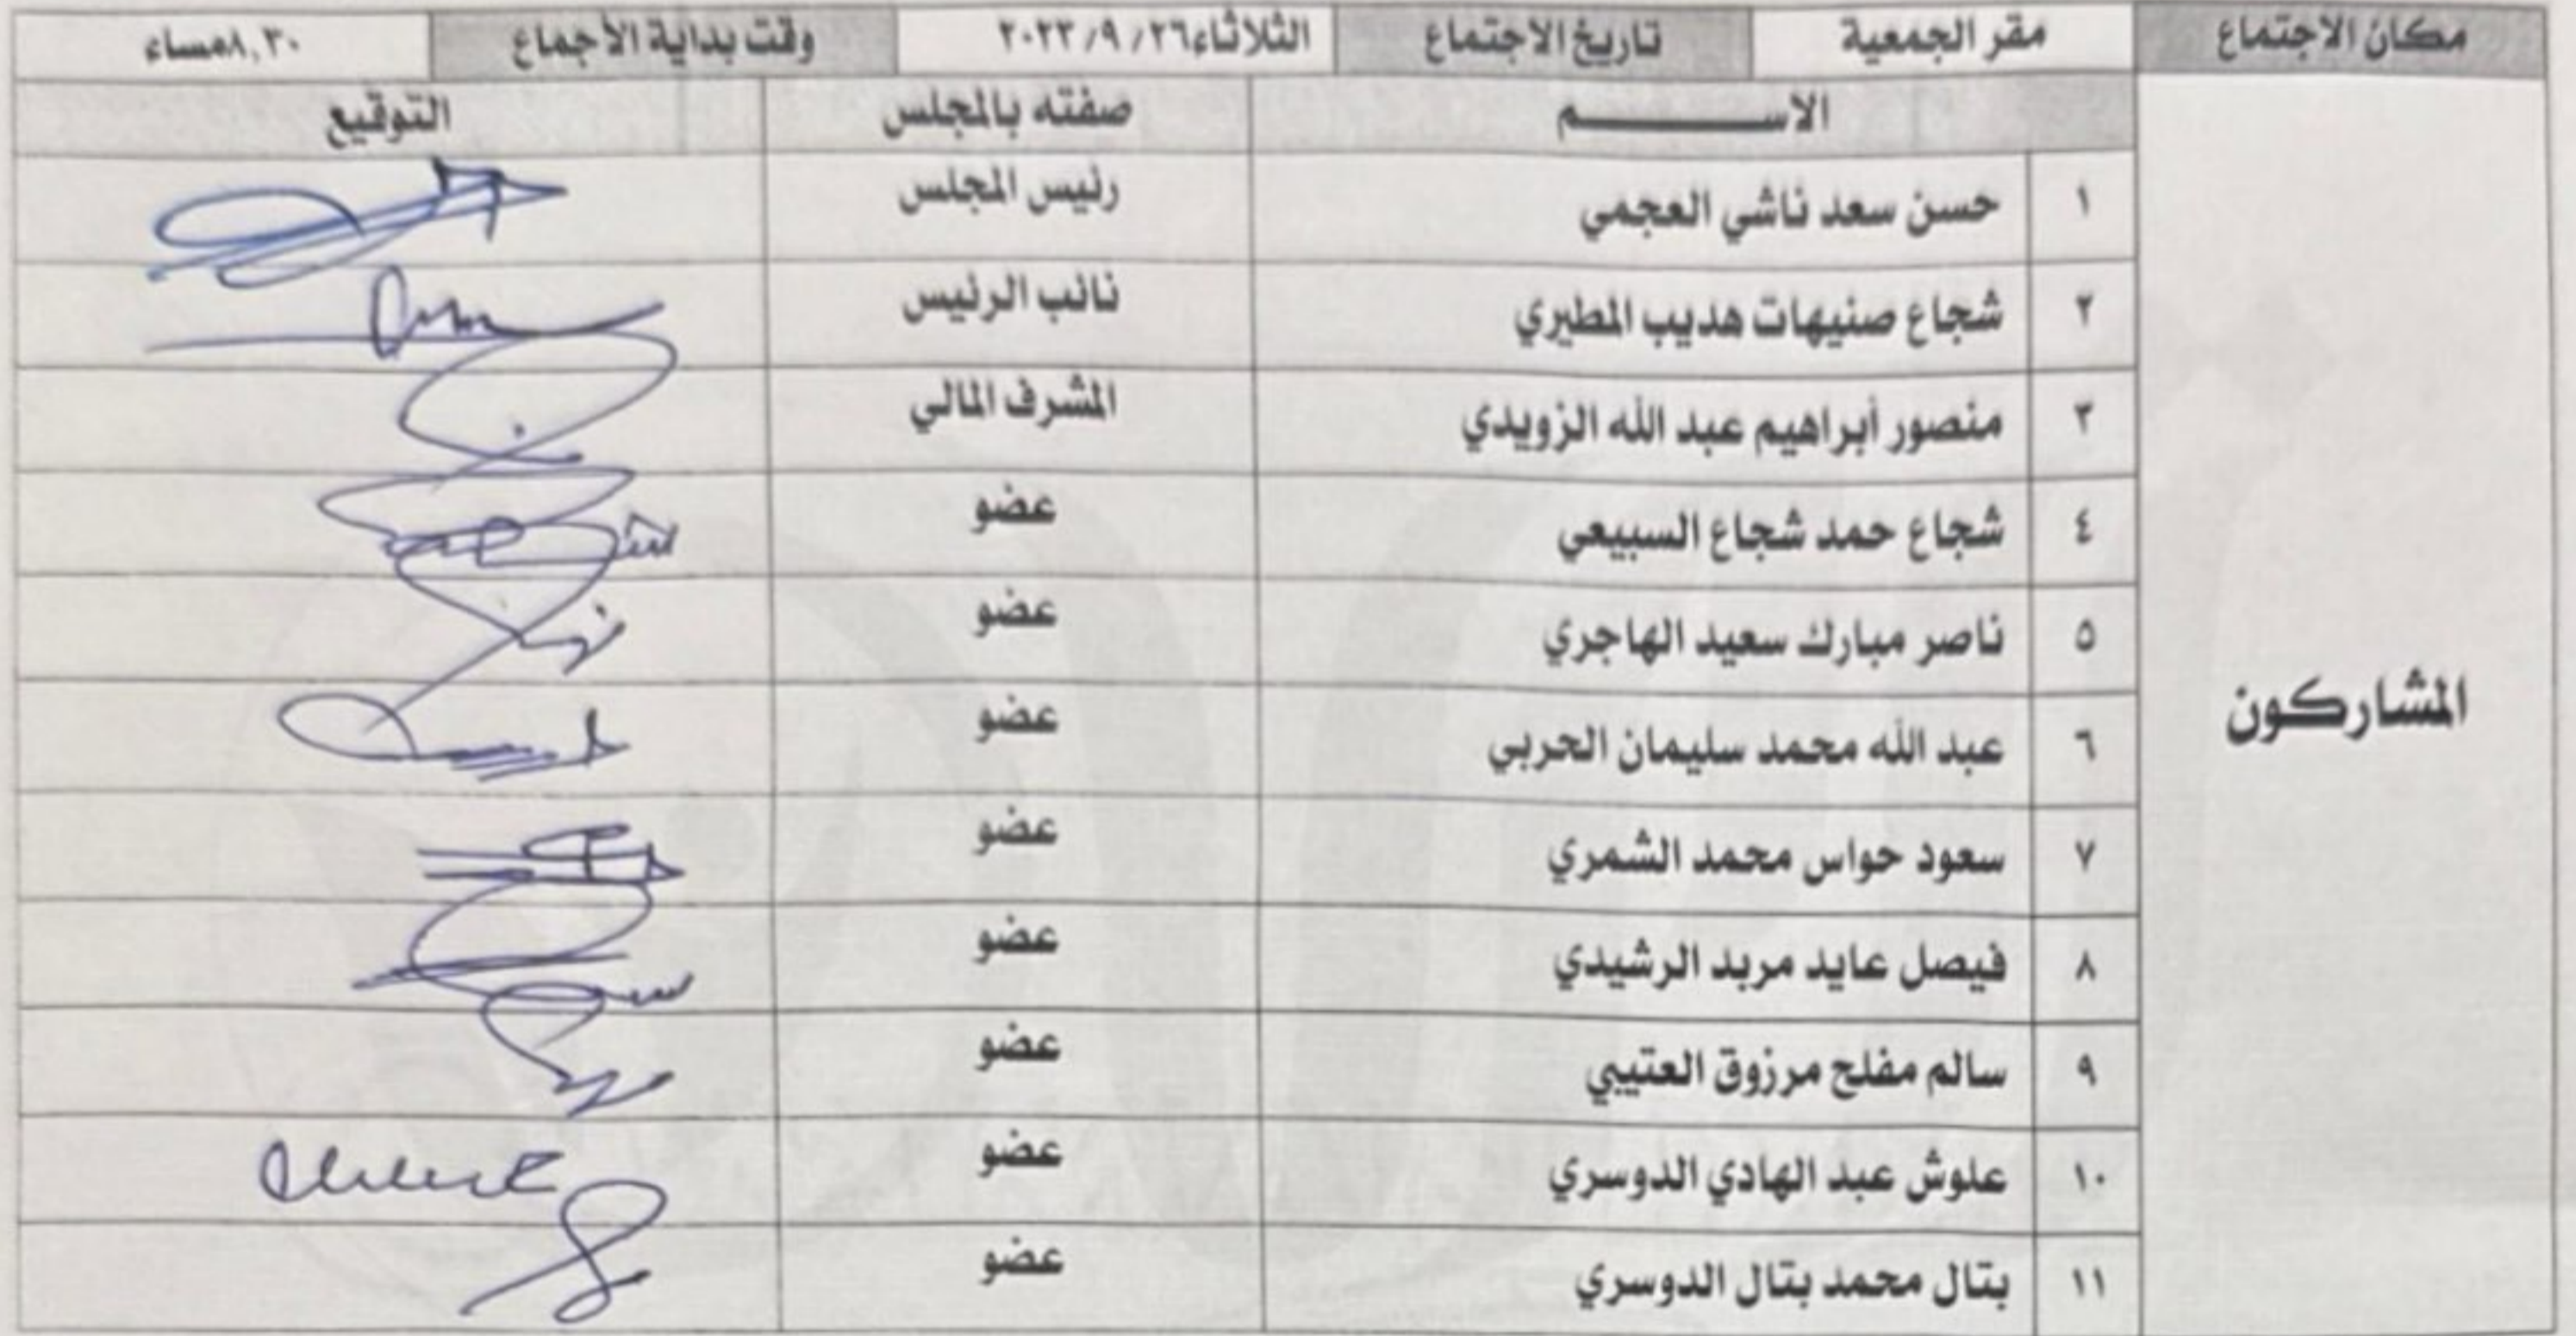 مكان الاجتماع مقر الجمعية تاريخ الاجتماع الثلاثاء٢٠٢٣/٩/٢٦ وقت بداية الأجماع ٨,٣٠مساء
الاســـــــم صفته بالمجلس التوقيع
المشاركون
١ حسن سعد ناشي العجمي رئيس المجلس
٢ شجاع صنيهات هديب المطيري نائب الرئيس
٣ منصور أبراهيم عبد الله الزويدي المشرف المالي
٤ شجاع حمد شجاع السبيعي عضو
٥ ناصر مبارك سعيد الهاجري عضو
٦ عبد الله محمد سليمان الحربي عضو
٧ سعود حواس محمد الشمري عضو
٨ فيصل عايد مربد الرشيدي عضو
٩ سالم مفلح مرزوق العتيبي عضو
١٠ علوش عبد الهادي الدوسري عضو
١١ بتال محمد بتال الدوسري عضو